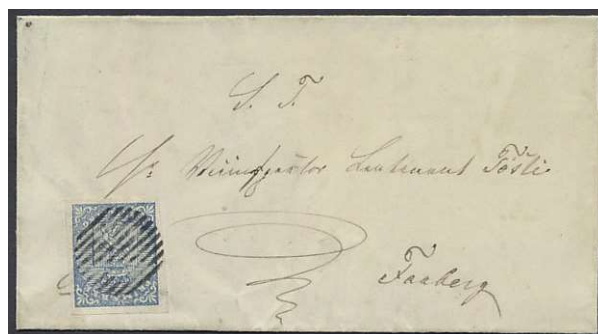 S. T.
Hr. Veiinspector Lieutenant Tösti
Faaberg